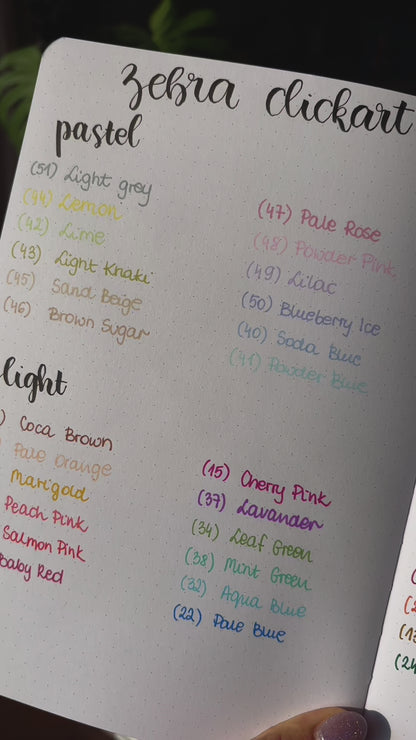 zebra clickart
pastel
(51) Light grey
(44) Lemon
(42) Lime
(43) Light Khaki
(45) Sand Beige
(46) Brown Sugar
(47) Pale Rose
(48) Powder Pink
(49) Lilac
(50) Blueberry Ice
(40) Soda Blue
(41) Powder Blue
light
) Coca Brown
Pale Orange
Marigold
Peach Pink
Salmon Pink
Baby Red
(15) Cherry Pink
(37) Lavander
(34) Leaf Green
(38) Mint Green
(32) Aqua Blue
(22) Pale Blue
(13
(24